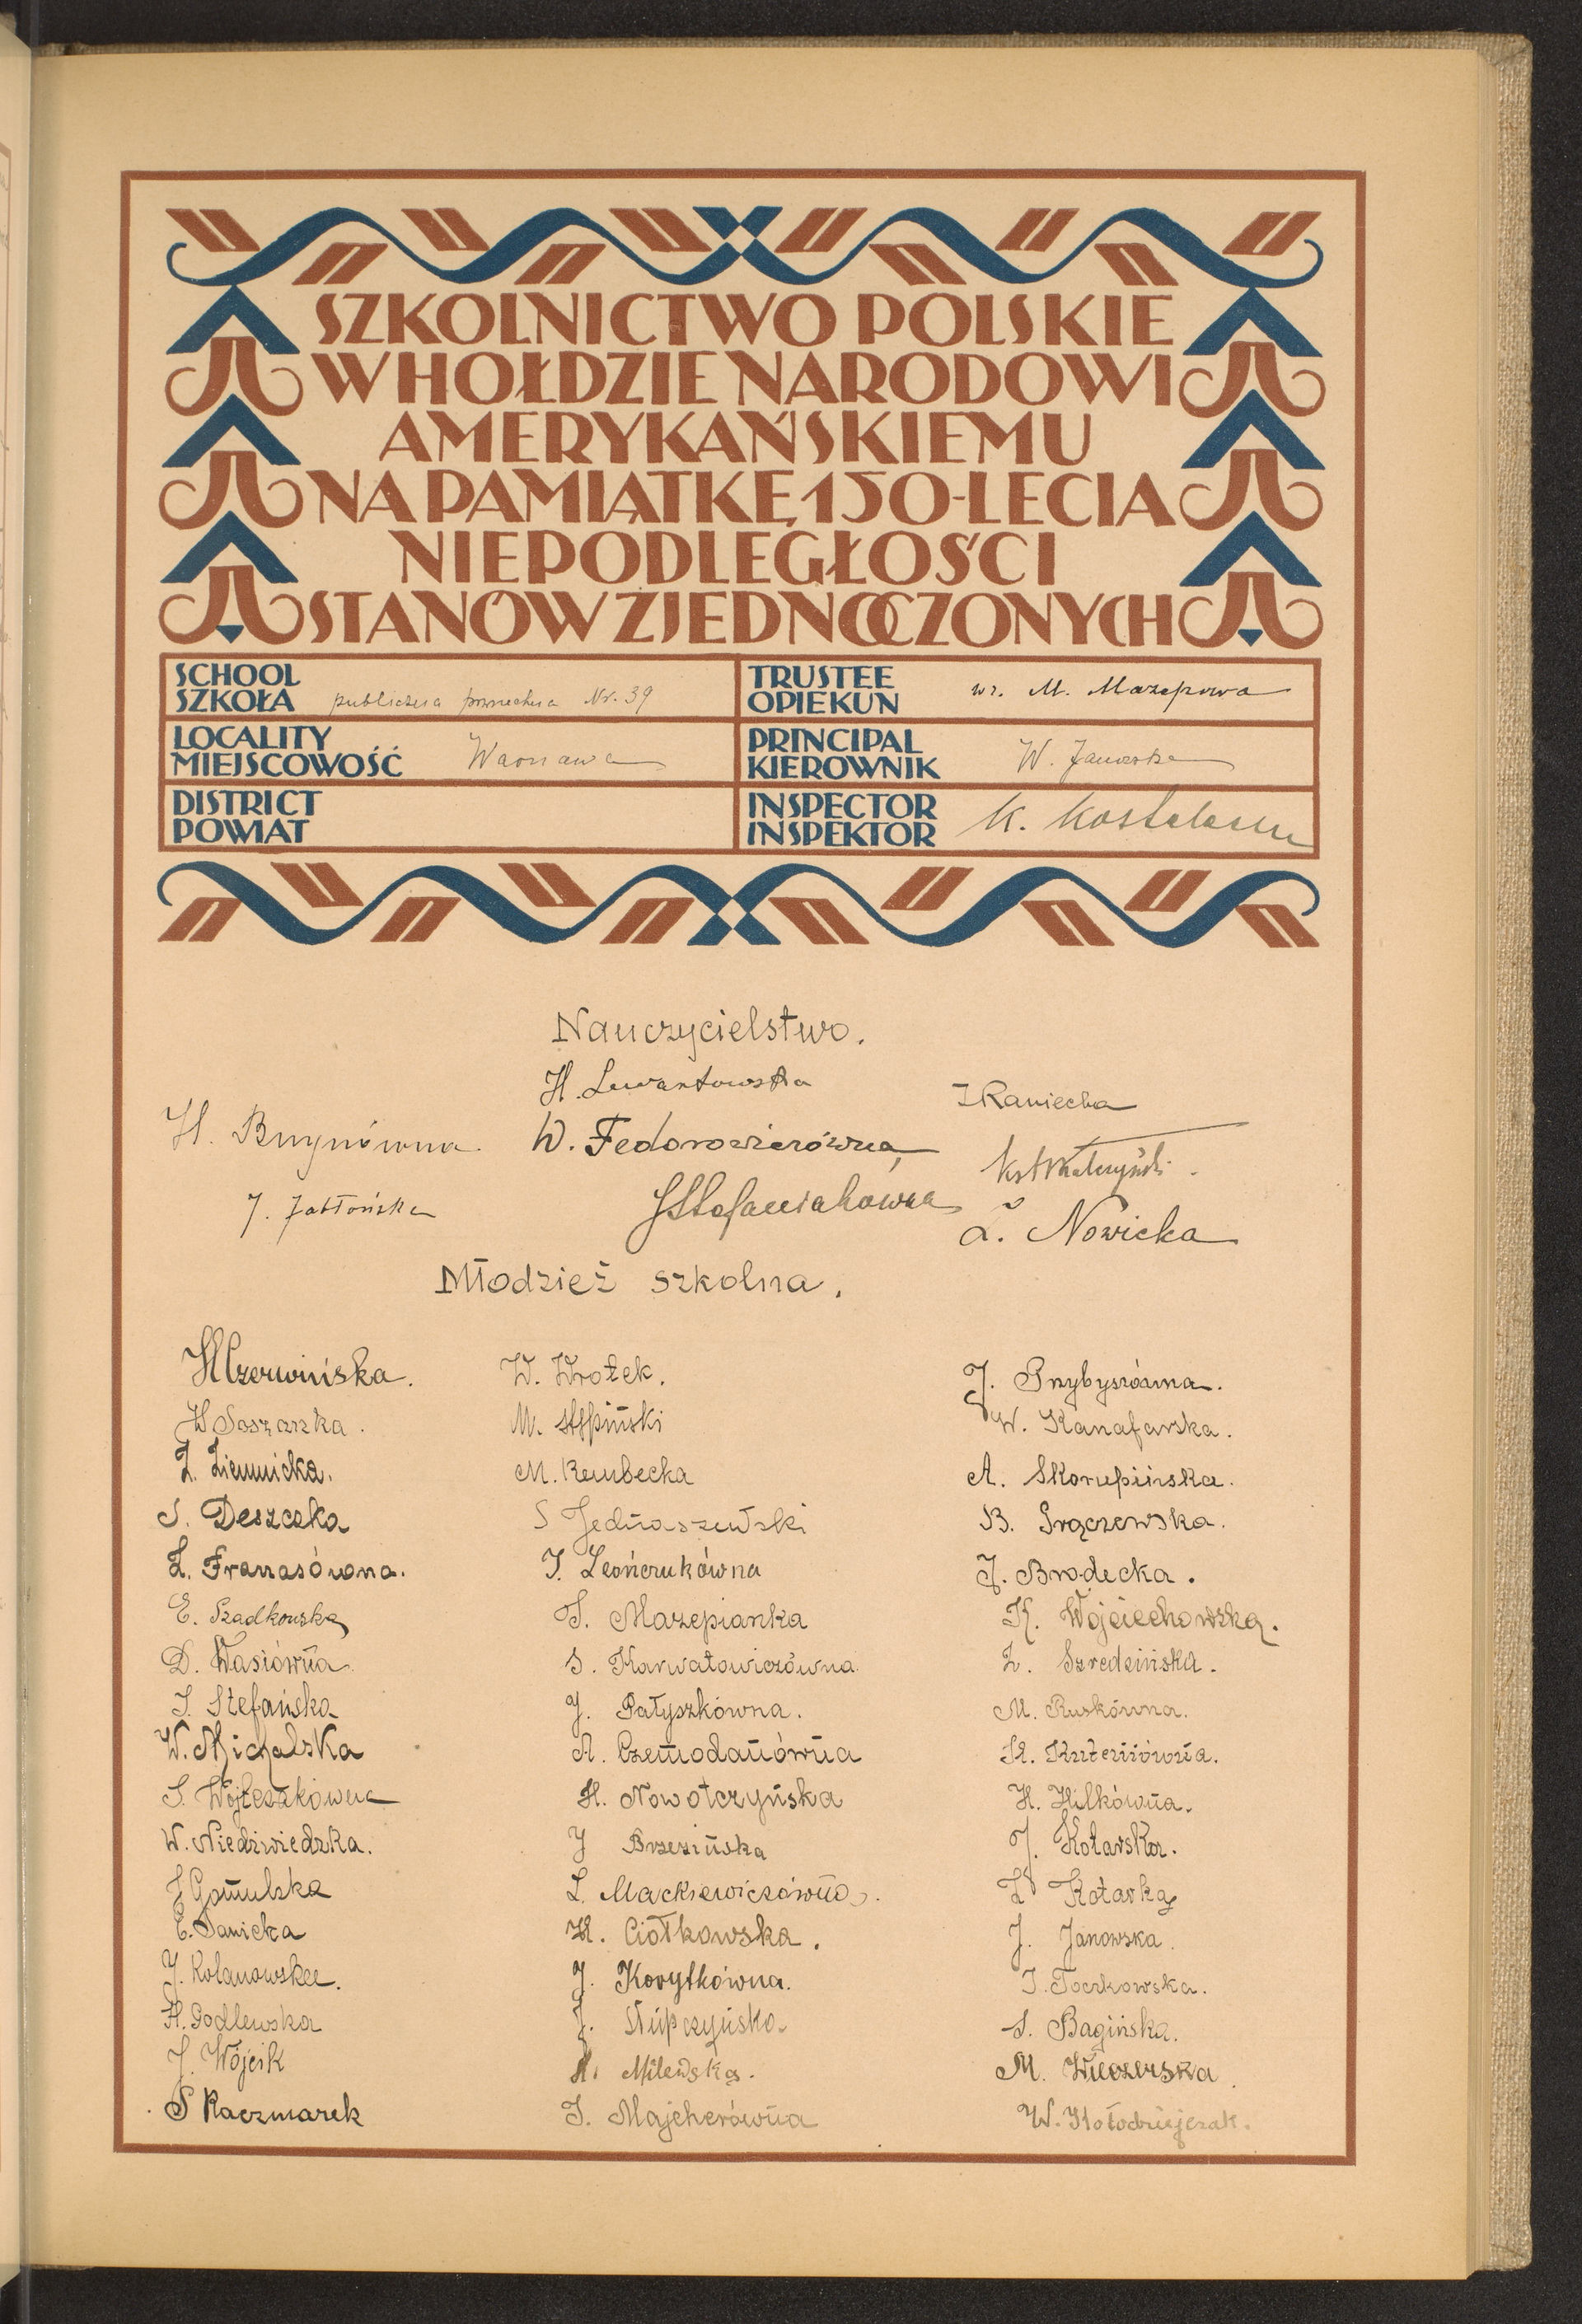 SZKOLNICTWO POLSKIE
W HOŁDZIE NARODOWI
AMERYKAŃSKIEMU
NA PAMIĄTKĘ 150-LECIA
NIEPODLEGŁOŚCI
STANÓW ZJEDNOCZONYCH
SCHOOL
SZKOŁA publiczna powszechna Nr. 39
TRUSTEE
OPIEKUN wz. M. Mazepowa
LOCALITY
MIEJSCOWOŚĆ Warszawa
PRINCIPAL
KIEROWNIK W. Janowska
DISTRICT
POWIAT
INSPECTOR
INSPEKTOR K.
Nauczycielstwo.
H. Lewantowska
I Kaniecka
H.
W. Fedorowiczówna
J. Jabłońska
J Stefaniakówna
Ł. Nowicka
Młodzież szkolna.
H Czerwińska.
W Soszazka.
Z. Ziemnicka.
S. Deszczka
Z. Franasówna.
E. Szadkowska
D. Wasiówna
I. Stefańska
W. Michalska
S. Wojteszkówna
W. Niedźwiedzka.
J Gomulska
E. Sawicka
J. Kolanowska.
H. Godlewska
J. Wójcik
S Kaczmarek
W. Wrotek.
M. Stpiński
M. Rembecka
S Jednaszewski
I. Leończukówna
T. Mazepianka
S. Karwatowiczówna
J. Patyszkówna.
A. Czemodanówna
H. Nowotczyńska
J Brzezińska
L. Mackiewiczówna.
H. Ciołkowska.
J. Korytkówna.
J. Słupczyńska
H. Milewska.
I. Majcherówna
J. Przybyszówna.
W. Kanafarska.
A. Skorupińska.
B. Srączewska.
J. Brodecka.
K. Wojciechowska.
Z. Szredzińska.
M. Ruskówna.
K. Kuterniówna.
H. Hilkówna.
J. Kotarska.
Z Kotarka
J. Janowska.
I. Toczkowska.
S. Bagińska.
M. Wieczerska.
W. Kołodziejczak.